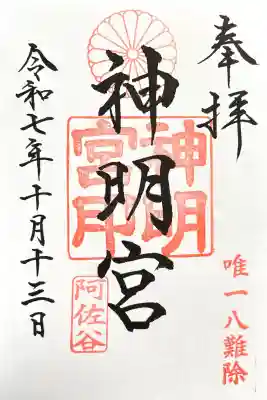 奉拝
唯一八難除
神明宮
神明
宮印
阿佐谷
令和七年十月十三日